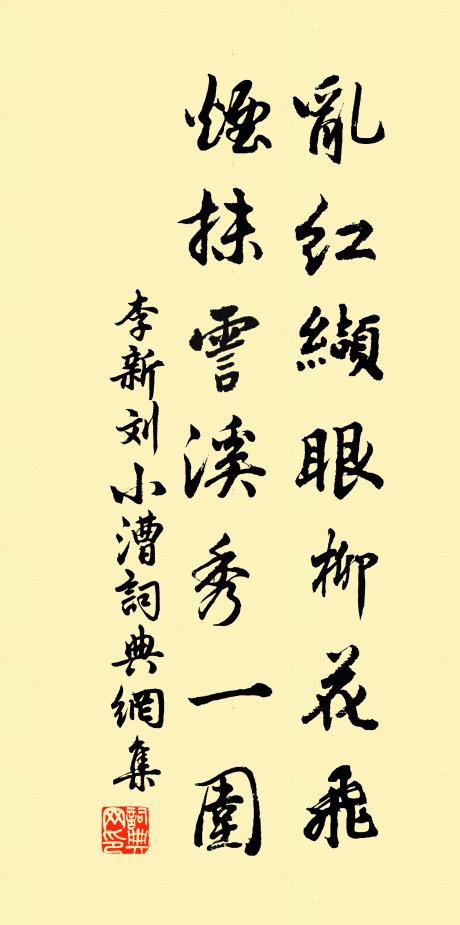 亂紅纈眼柳花飛
煙抹霅溪秀一圍
李新刘小漕詞典網集
詞典网印